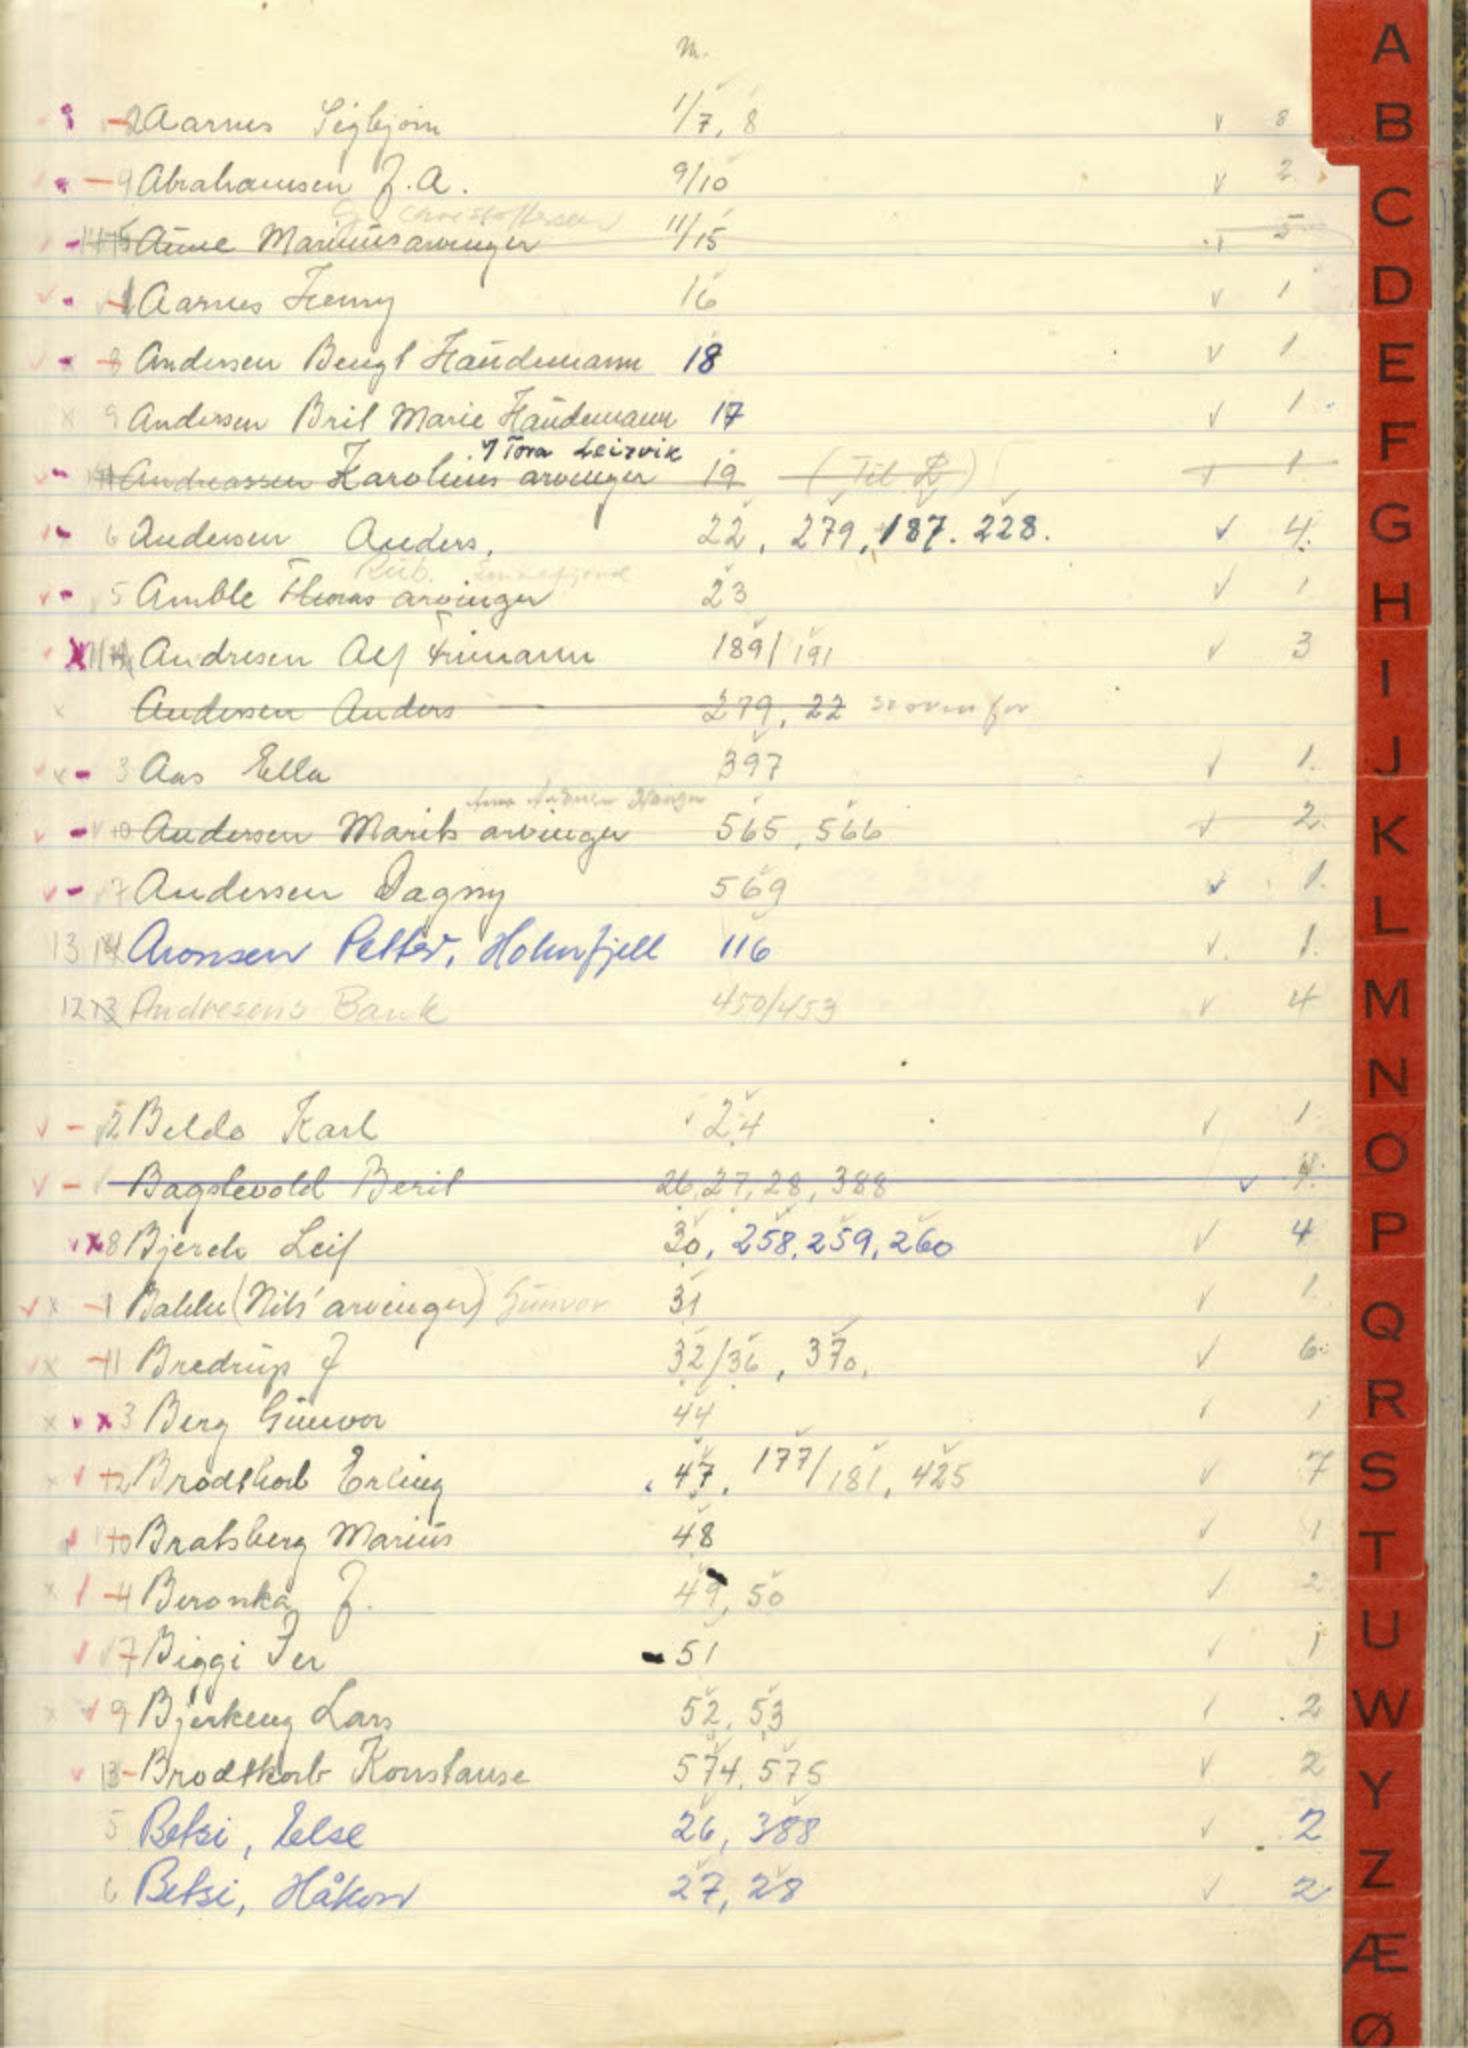 n.
2 Aarnes Sigbjørn 1/7, 8 v 8
9 Abrahamsen J. A. 9/10 v 2
Christoffersen
Aune Marius arvinger 11/15 v 5
1 Aarnes Henny 16 v 1
8 Andersen Bengt Haudemann 18 v 1
9 Andersen Brit Marie Haudemann 17 v 1
Tora Leirvik
Andreassen Karolius arvinger 19 (Til L) v 1
6 Andersen Anders, 22, 279, 187. 228. v 4.
5 Amble Thomas arvinger 23 v 1
11 Andresen Alf Frimann 189/191 v 3
Andersen Anders 279, 22 se ovenfor
3 Aas Ella 397 v 1.
10 Andersen Marits arvinger 565, 566 v 2.
7 Andersen Dagny 569 v 1.
13 14 Aronsen Petter, Holmfjell 116 v. 1.
12 13 Andresens Bank 450/453 v 4
2 Beldo Karl 24 v 1
Bagslevold Berit 26, 27, 28, 388 v
8 Bjerch Leif 30, 258, 259, 260 v 4
1 Bakke (Nils' arvinger) Gunvor 31 v 1
11 Bredrup J 32/36, 370, v 6
3 Berg Gunvor 44 1
12 Brodtkorb Erling 47, 177/181, 425 v 7
10 Bratsberg Marius 48 v 1
4 Beronka J. 49, 50 v 2
7 Biggi Per 51 v 1
9 Bjerkeng Lars 52, 53 2
13 Brodtkorb Konstanse 574, 575 v 2
5 Betsi, Else 26, 388 v 2
6 Betsi, Håkon 27, 28 v 2
A
B
C
D
E
F
G
H
I
J
K
L
M
N
O
P
Q
R
S
T
U
W
Y
Z
Æ
Ø